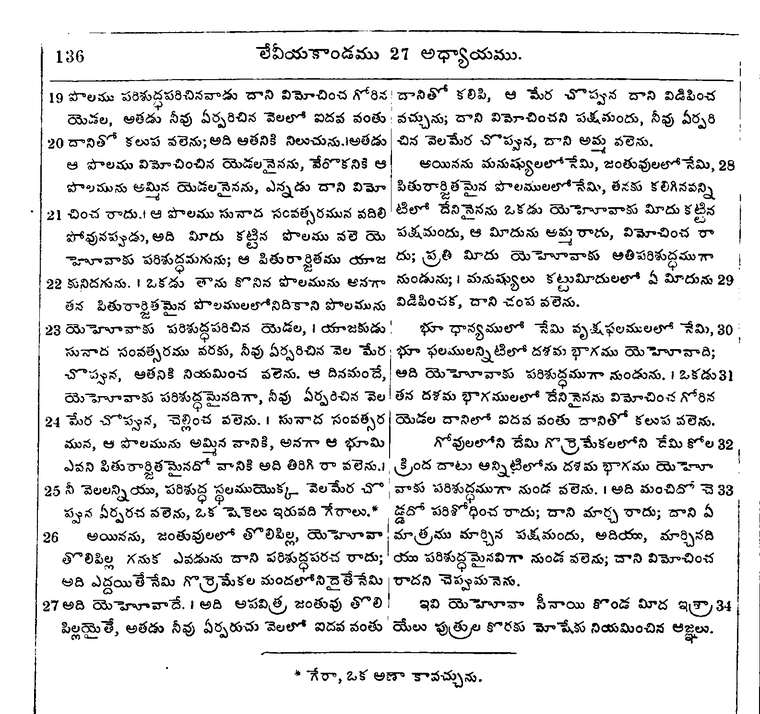 136 లేవీయకాండము 27 అధ్యాయము.
19 పొలము పరిశుద్ధపరిచినవాడు దాని విమోచించ గోరిన
యెడల, అతడు నీవు ఏర్పరిచిన వెలలో ఐదవ వంతు
20 దానితో కలుప వలెను; అది అతనికి నిలుచును. ।అతడు
ఆ పొలము విమోచించిన యెడలనైనను, వేరొకనికి ఆ
పొలమును అమ్మిన యెడలనైనను, ఎన్నడు దాని విమో
21 చించ రాదు. । ఆ పొలము సునాద సంవత్సరమున వదిలి
పోవునప్పుడు, అది మీదు కట్టిన పొలము వలె యె
హోవాకు పరిశుద్ధమగును; ఆ పితురార్జితము యాజ
22 కునిదగును. । ఒకడు తాను కొనిన పొలమును అనగా
తన పితురార్జితమైన పొలములలోనిదికాని పొలమును
23 యెహోవాకు పరిశుద్ధపరిచిన యెడల, । యాజకుడు
సునాద సంవత్సరము వరకు, నీవు ఏర్పరిచిన వెల మేర
చొప్పున, ఆతనికి నియమించ వలెను. ఆ దినమందే,
యెహోవాకు పరిశుద్ధమైనదిగా, నీవు ఏర్పరిచిన వెల
24 మేర చొప్పున, చెల్లించ వలెను. । సునాద సంవత్సర
మున, ఆ పొలమును అమ్మిన వానికి, అనగా ఆ భూమి
ఎవని పితురార్జితమైనదో వానికి అది తిరిగి రా వలెను. ।
25 నీ వెలలన్నియు, పరిశుద్ధ స్థలముయొక్క వెలమేర చొ
ప్పున ఏర్పరచ వలెను, ఒక షెకెలు ఇరువది గేరాలు.*
26 అయినను, జంతువులలో తొలిపిల్ల, యెహోవా
తొలిపిల్ల గనుక ఎవడును దాని పరిశుద్ధపరచ రాదు;
అది ఎద్దయితేనేమి గొర్రెమేకల మందలోనిదైతేనేమి
27 అది యెహోవాదే. । అది అపవిత్ర జంతువు తొలి
పిల్లయైతే, అతడు నీవు ఏర్పరుచు వెలలో ఐదవ వంతు
దానితో కలిపి, ఆ మేర చొప్పున దాని విడిపించ
వచ్చును; దాని విమోచించని పక్షమందు, నీవు ఏర్పరి
చిన వెలమేర చొప్పున, దాని అమ్మ వలెను.
అయినను మనుష్యులలోనేమి, జంతువులలోనేమి, 28
పితురార్జితమైన పొలములలోనేమి, తనకు కలిగినవన్ని
టిలో దేనినైనను ఒకడు యెహోవాకు మీదు కట్టిన
పక్షమందు, ఆ మీదును అమ్మ రాదు, విమోచించ రా
దు; ప్రతి మీదు యెహోవాకు అతిపరిశుద్ధముగా
నుండును; । మనుష్యులు కట్టుమీదులలో ఏ మీదును 29
విడిపించక, దాని చంప వలెను.
భూ ధాన్యములో నేమి వృక్షఫలములలో నేమి, 30
భూ ఫలములన్నిటిలో దశమ భాగము యెహోవాది;
అది యెహోవాకు పరిశుద్ధముగా నుండును. । ఒకడు 31
తన దశమ భాగములలో దేనినైనను విమోచించ గోరిన
యెడల దానిలో ఐదవ వంతు దానితో కలుప వలెను.
గోవులలోని దేమి గొర్రెమేకలలోని దేమి కోల 32
క్రింద దాటు అన్నిటిలోను దశమ భాగము యెహో
వాకు పరిశుద్ధముగా నుండ వలెను. । అది మంచిదో చె 33
డ్డదో పరిశోధించ రాదు; దాని మార్చ రాదు; దాని ఏ
మాత్రము మార్చిన పక్షమందు, అదియు, మార్చినది
యు పరిశుద్ధమైనవిగా నుండ వలెను; దాని విమోచించ
రాదని చెప్పుమనెను.
ఇవి యెహోవా సీనాయి కొండ మీద ఇశ్రా 34
యేలు పుత్రుల కొరకు మోషేకు నియమించిన ఆజ్ఞలు.
* గేరా, ఒక అణా కావచ్చును.